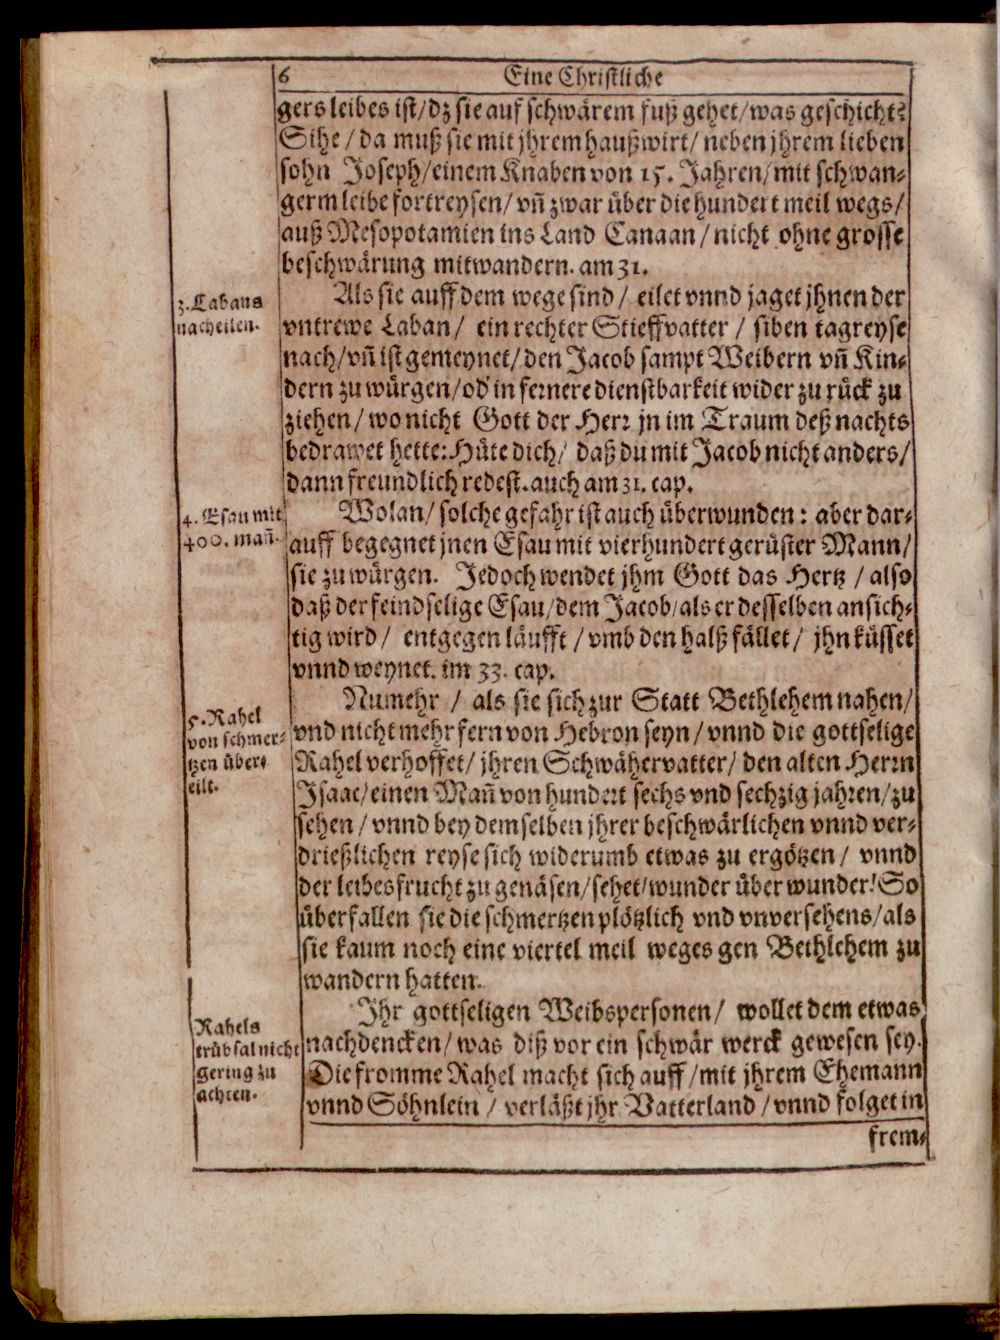 6 Eine Christliche
gers leibes ist/dz sie auf schwärem fuß gehet/was geschicht?
Sihe/da muß sie mit jhrem haußwirt/neben jhrem lieben
sohn Joseph/einem Knaben von 15. Jahren/mit schwan-
germ leibe fortreysen/vñ zwar über die hundert meil wegs/
auß Mesopotamien ins Land Canaan/nicht ohne grosse
beschwärung mitwandern. am 31.
3. Labans
nacheilen.
Als sie auff dem wege sind/ eilet vnnd jaget jhnen der
vntrewe Laban/ ein rechter Stieffvatter/ siben tagreyse
nach/vñ ist gemeynet/den Jacob sampt Weibern vñ Kin-
dern zu würgen/od' in fernere dienstbarkeit wider zu rück zu
ziehen/wo nicht Gott der Herr jn im Traum deß nachts
bedrawet hette: Hüte dich/ daß du mit Jacob nicht anders/
dann freundlich redest. auch am 31. cap.
4. Esau mit
400. mañ.
Wolan/solche gefahr ist auch überwunden: aber dar-
auff begegnet jnen Esau mit vierhundert gerüster Mann/
sie zu würgen. Jedoch wendet jhm Gott das Hertz/also
daß der feindselige Esau/dem Jacob/als er desselben ansich-
tig wird/ entgegen läufft/vmb den halß fället/ jhn küsset
vnnd weynet. im 33. cap.
5. Rahel
von schmer-
tzen über-
eilt.
Numehr/ als sie sich zur Statt Bethlehem nahen/
vnd nicht mehr fern von Hebron seyn/vnnd die gottselige
Rahel verhoffet/jhren Schwähervatter/den alten Herrn
Isaac/einen Mañ von hundert sechs vnd sechzig jahren/zu
sehen/vnnd bey demselben jhrer beschwärlichen vnnd ver-
drießlichen reyse sich widerumb etwas zu ergötzen/ vnnd
der leibesfrucht zu genäsen/sehet/wunder über wunder! So
überfallen sie die schmertzen plötzlich vnd vnversehens/als
sie kaum noch eine viertel meil weges gen Bethlehem zu
wandern hatten.
Rahels
trübsal nicht
gering zu
achten.
Ihr gottseligen Weibspersonen/ wollet dem etwas
nachdencken/was diß vor ein schwär werck gewesen sey.
Die fromme Rahel macht sich auff/mit jhrem Ehemann
vnnd Söhnlein/ verläßt jhr Vatterland/vnnd folget in
frem-